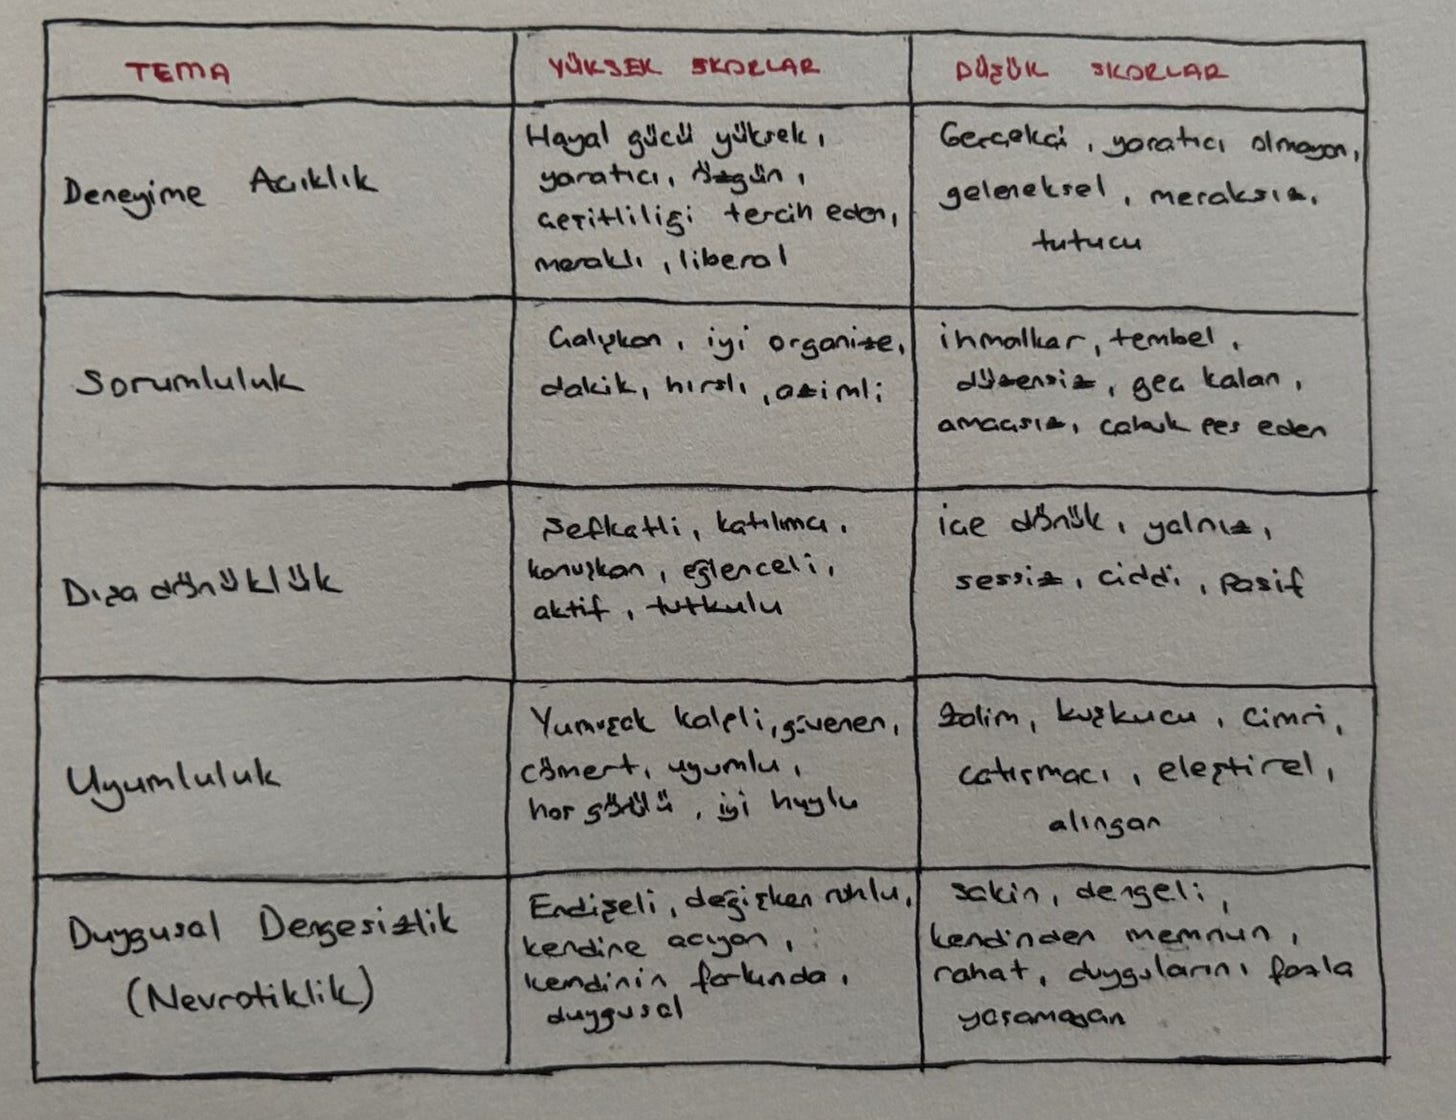 TEMA
YÜKSEK SKORLAR
DÜŞÜK SKORLAR
Deneyime Açıklık
Hayal gücü yüksek,
yaratıcı, özgün,
çeşitliliği tercih eden,
meraklı, liberal
Gerçekçi, yaratıcı olmayan,
geleneksel, meraksız,
tutucu
Sorumluluk
Çalışkan, iyi organize,
dakik, hırslı, azimli
ihmalkar, tembel,
düzensiz, geç kalan,
amaçsız, çabuk pes eden
Dışa dönüklük
Şefkatli, katılımcı,
konuşkan, eğlenceli,
aktif, tutkulu
içe dönük, yalnız,
sessiz, ciddi, pasif
Uyumluluk
Yumuşak kalpli, güvenen,
cömert, uyumlu,
hor görülü, iyi huylu
Zalim, kuşkucu, cimri,
çatışmacı, eleştirel,
alıngan
Duygusal Dengesizlik
(Nevrotiklik)
Endişeli, değişken ruhlu,
kendine acıyan,
kendinin farkında,
duygusal
Sakin, dengeli,
kendinden memnun,
rahat, duygularını fazla
yaşamayan